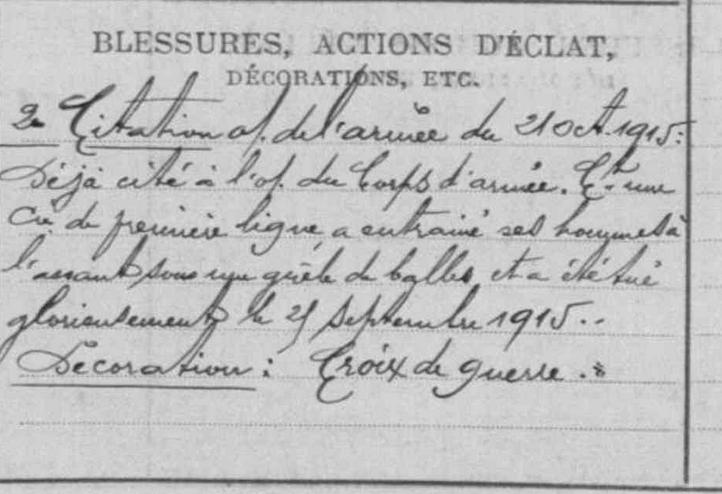 BLESSURES, ACTIONS D'ÉCLAT,
DÉCORATIONS, ETC.
2e Citation o/. de l'armée du 21 Oct. 1915:
Déjà cité à l'o/. du Corps d'armée. Ct une
Cie de première ligne, a entrainé ses hommes à
l'assaut sous une grêle de balles et a été tué
glorieusement le 25 Septembre 1915..
Décoration: Croix de guerre.